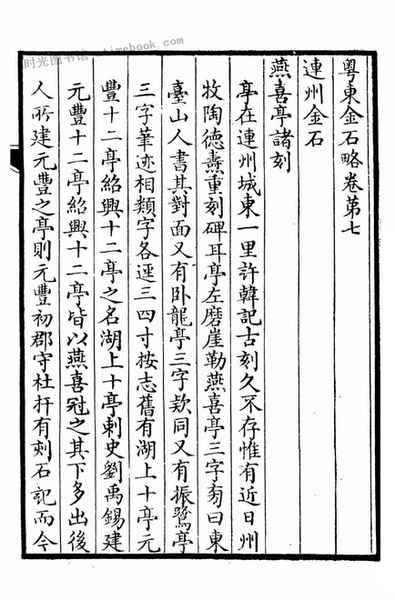 时光图书馆 timebook.com
粵東金石略卷第七
連州金石
燕喜亭諸刻
亭在連州城東一里許韓記古刻久不存惟有近日州
牧陶德燾重刻碑耳亭左磨崖勒燕喜亭三字旁曰東
臺山人書其對面又有卧龍亭三字欵同又有振鷺亭
三字筆迹相類字各逕三四寸按志舊有湖上十亭元
豐十二亭紹興十二亭之名湖上十亭刺史劉禹錫建
元豐十二亭紹興十二亭皆以燕喜冠之其下多出後
人所建元豐之亭則元豐初郡守杜杆有刻石記而今